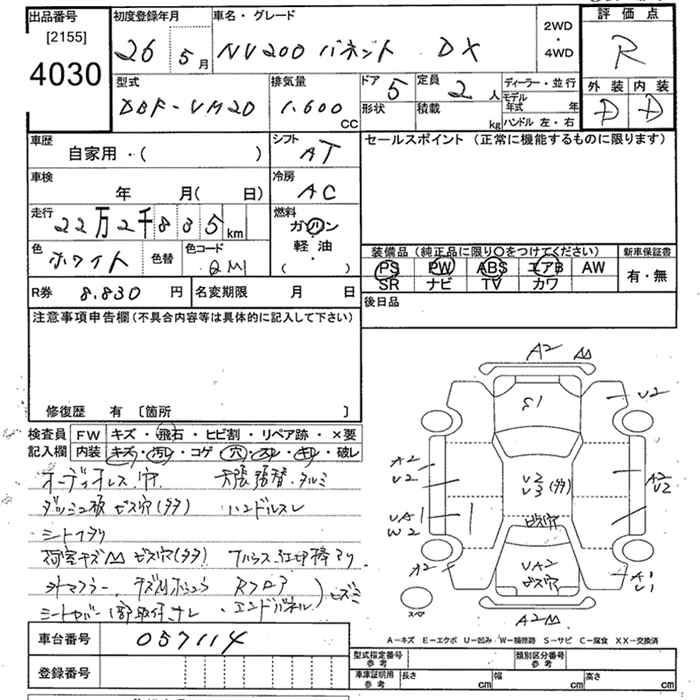 出品番号
[2155]
4030
初度登録年月
26 5月
車名・グレード
NV200 バネット DX
2WD
・
4WD
評価点
R
外装 内装
D D
型式
DBF-VM20
排気量
1.600 CC
ドア 5
定員 2人
形状
積載 kg
ディーラー・並行
モデル年式 年
ハンドル 左・右
車歴
自家用・( )
シフト
AT
車検
年 月( 日)
冷房
AC
走行
22万2千835km
燃料
ガソリン
軽油
( )
色
ホワイト
色替
色コード
QM1
R券 8.830円
名変期限 月 日
セールスポイント(正常に機能するものに限ります)
装備品(純正品に限り○をつけてください)
PS PW ABS エアB AW
SR ナビ TV カワ
新車保証書
有・無
後日品
注意事項申告欄(不具合内容等は具体的に記入して下さい)
修復歴 有 [箇所 ]
検査員記入欄
FW キズ・飛石・ヒビ割・リペア跡・×要
内装 キズ・汚れ・コゲ・穴・スレ・キレ・破レ
オーディオレス 穴 天張
ビス穴(多)
ハンドルスレ
荷室キズ ビス穴(多)
Rフロア
エンドパネル
A2
S1
U2
A2
U2
A2
U2
U2
U3(多)
ビス穴
UA1
W2
UA2
ビス穴
A2
A1
U1
スペア
A2
A-キズ E-エクボ U-凹み W-補修跡 S-サビ C-腐食 XX-交換済
車台番号 057114
登録番号
型式指定番号
参考
類別区分番号
参考
車庫証明用
参考
長さ cm
幅 cm
高さ cm